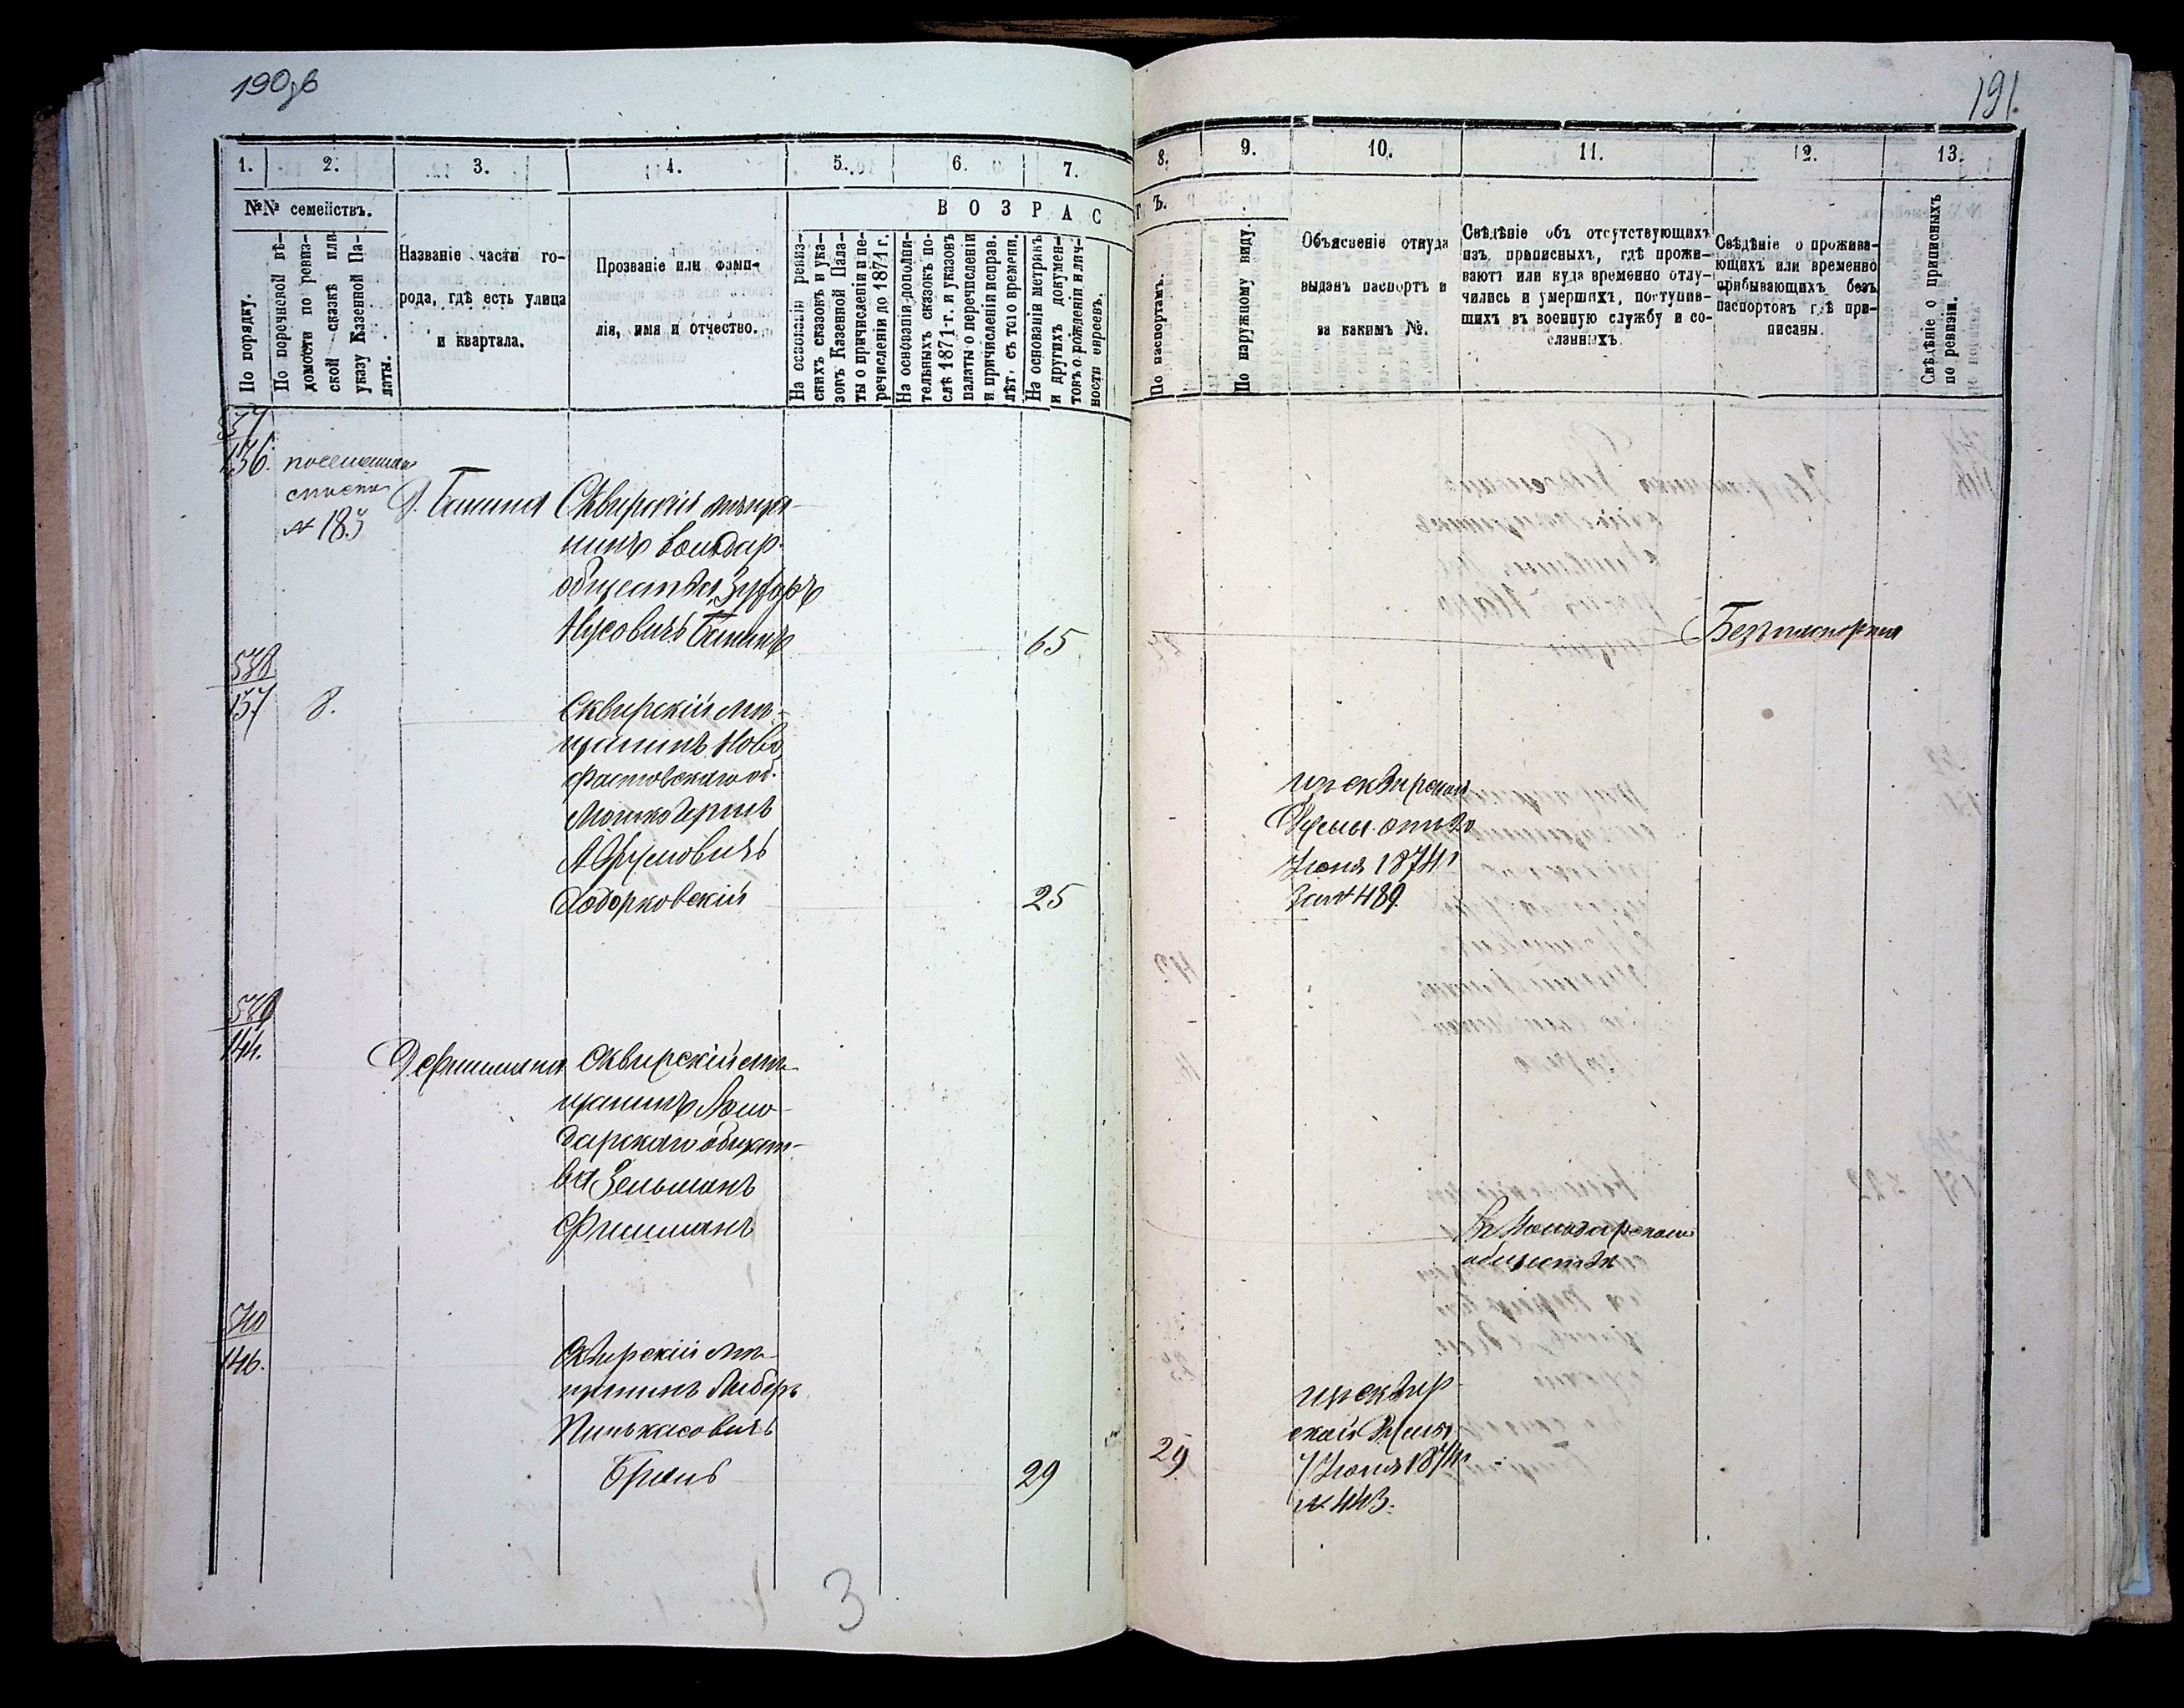 190об
191.
1.
2.
3.
4.
5.
6.
7.
8.
9.
10.
11.
12.
13.
№№ семействъ.
ВОЗРАС
ТЪ.
По порядку.
По поречневой вѣ-
домости по ревиз-
ской сказкѣ или
указу Казенной Па-
латы.
Названіе части го-
рода, гдѣ есть улица
и квартала.
Прозваніе или фами-
лія, имя и отчество.
На основаніи ревиз-
скихъ сказокъ и ука-
зовъ Казенной Пала-
ты о причисленіи и пе-
речисленіи до 1871 г.
На основаніи дополни-
тельныхъ сказокъ по-
слѣ 1871 г. и указовъ
палаты о перечисленіи
и причисленіи исправ.
лѣт. съ того времени.
На основаніи метрикъ
и другихъ докумен-
токъ о рожденіи и лич-
ности евреевъ.
По паспортамъ.
По наружному виду.
Объясненіе откуда
выданъ паспортъ и
за какимъ №.
Свѣдѣніе объ отсутствующихъ
изъ приписныхъ, гдѣ прожи-
ваютъ или куда временно отлу-
чились и умершихъ, поступив-
шихъ въ военную службу и со-
сланныхъ.
Свѣдѣніе о прожива-
ющихъ или временно
прибывающихъ безъ
паспортовъ гдѣ при-
писаны.
Свѣдѣніе о приписныхъ
по ревизіи.
136.
№ 183
Сквирскій мѣща-
нинъ
общества
65
538
137
8.
Сквирскій мѣ-
щанинъ Ново
фастовскаго об.
Мошко Гершъ
Аврумовичъ
25
изъ сквирской
Думы отъ 20
Іюня 1874 г.
за № 489.
144.
Сквирскій мѣ-
щанинъ Воло-
дарскаго общест-
ва Зельманъ
Фишманъ
въ Володарскомъ
обществѣ
146.
Сквирскій мѣ-
щанинъ Либеръ
Пинькасовичъ
29
29
изъ сквир
ской Думы
7 Іюня 1874 г.
№ 443.
3